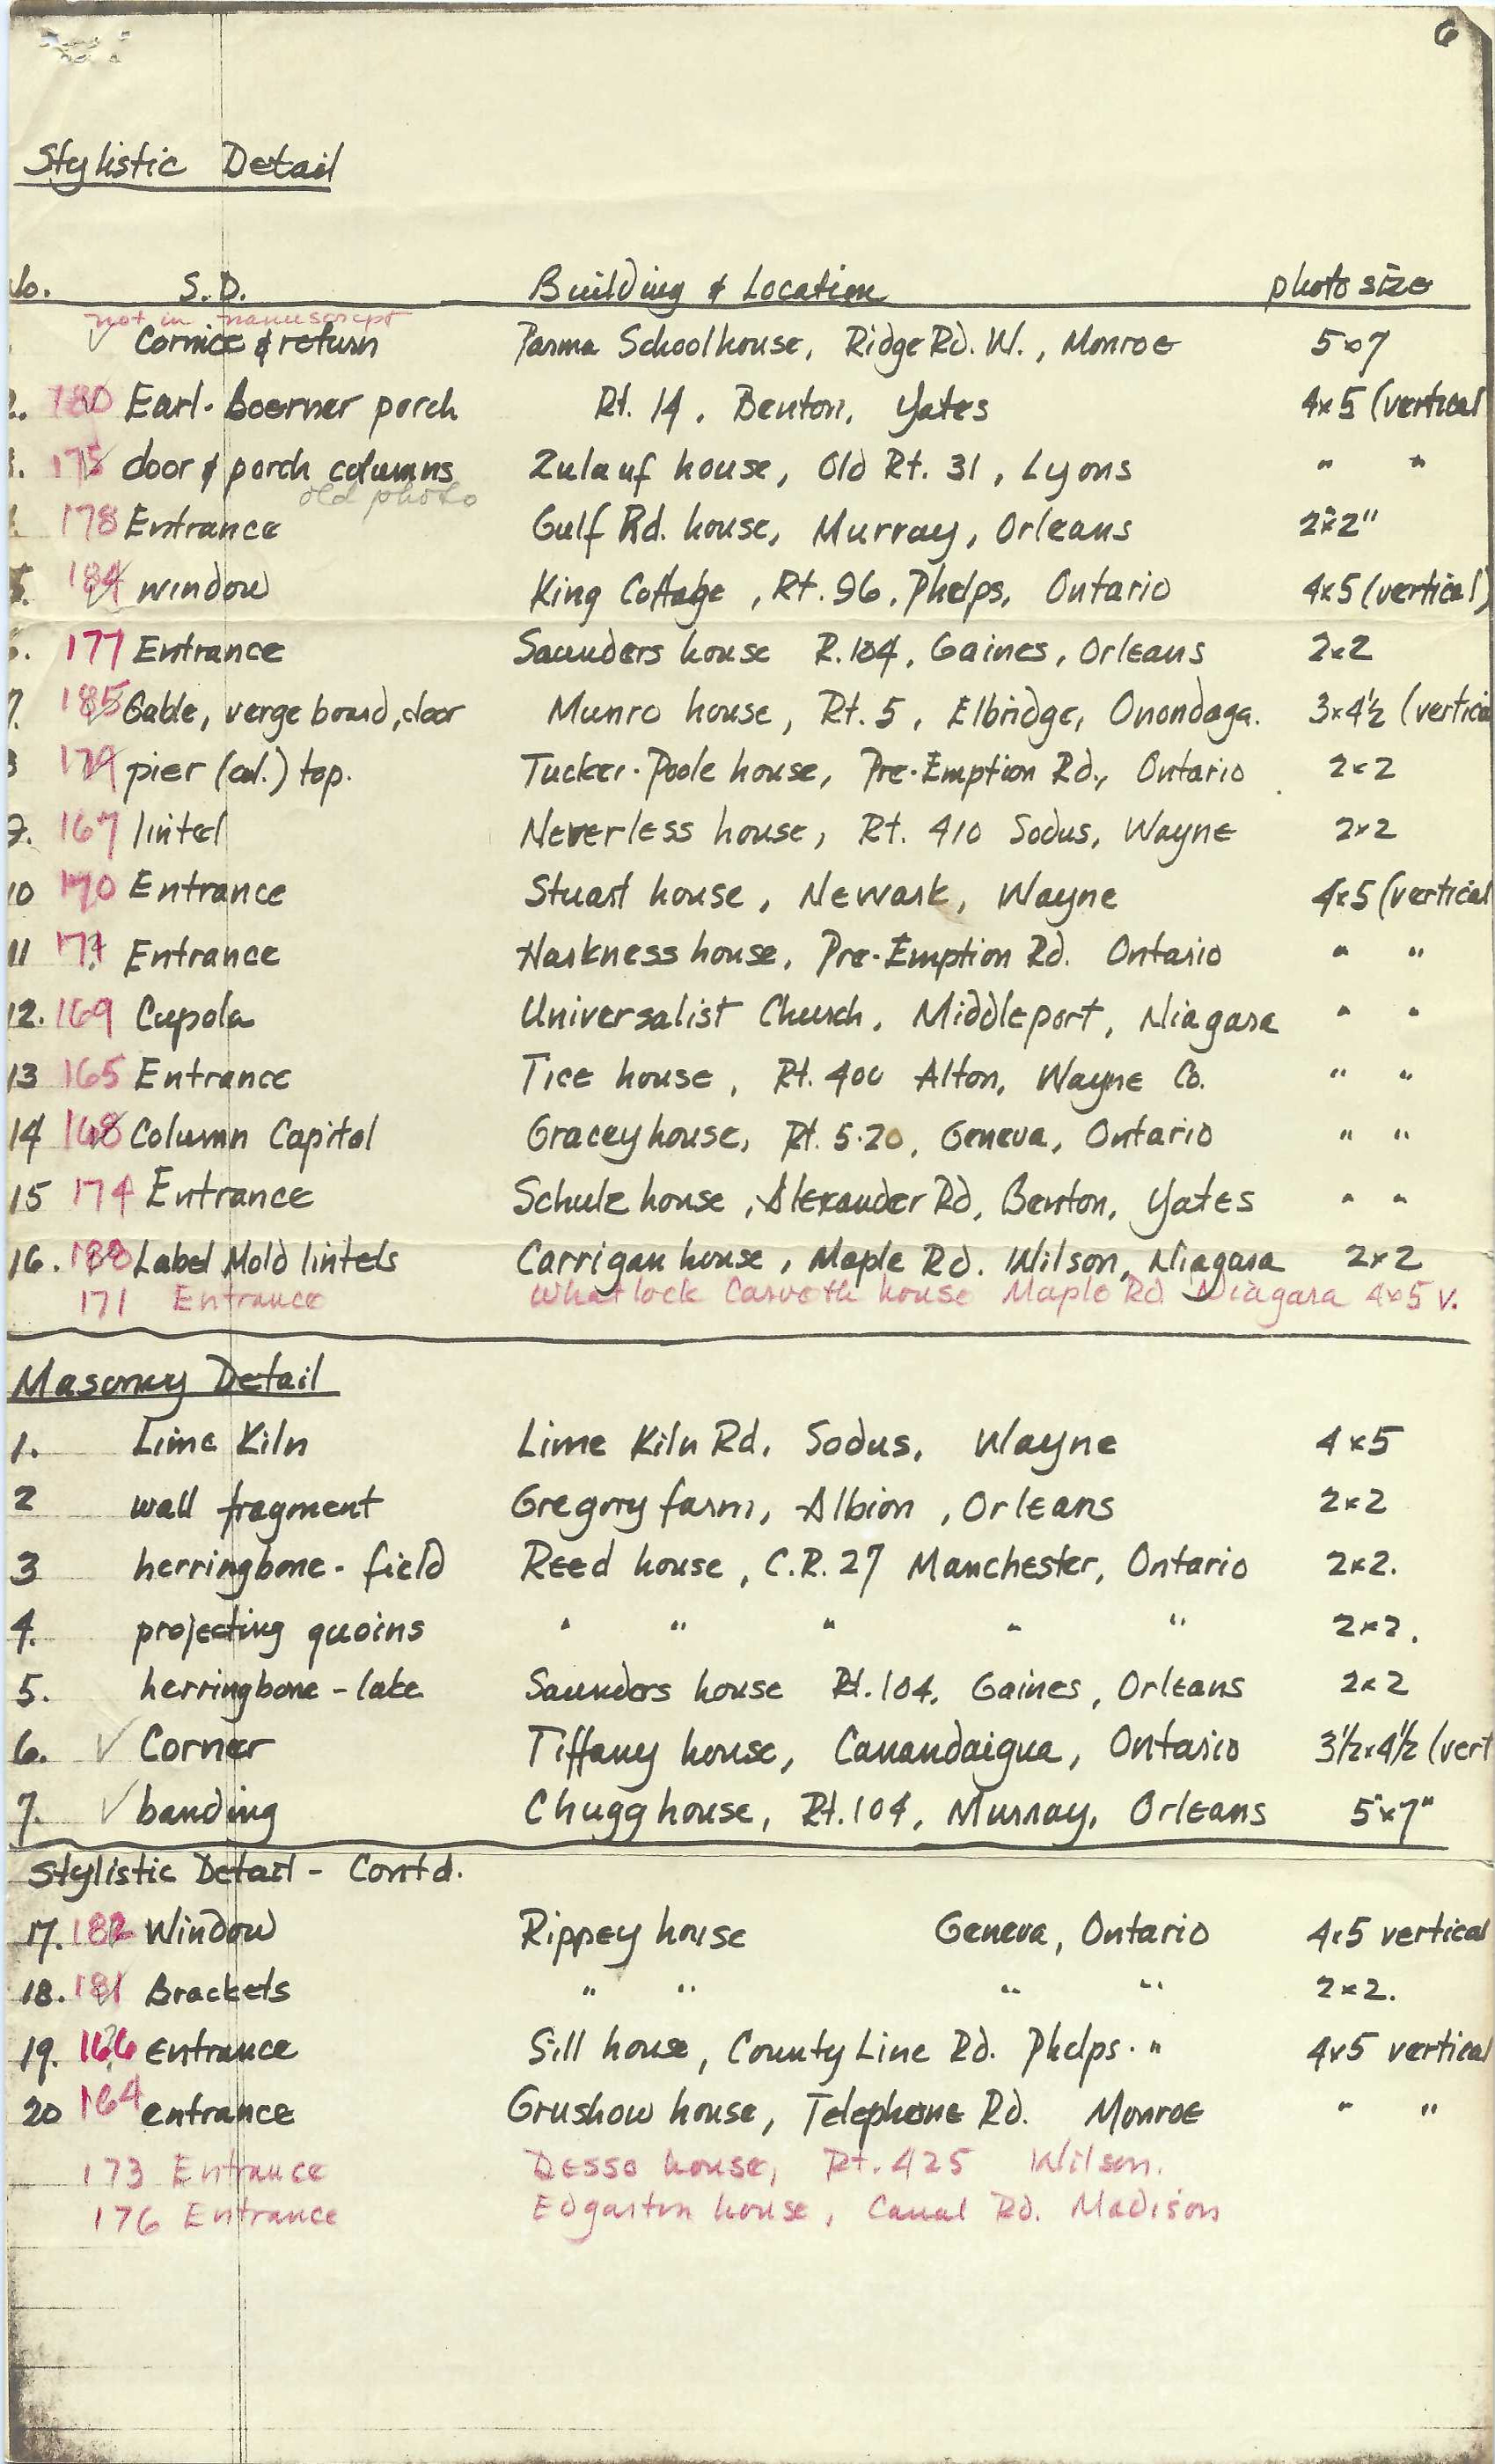 6
Stylistic Detail
No. S.D. Building & Location photo size
not in manuscript
✓ Cornice & return Parma Schoolhouse, Ridge Rd. W., Monroe 5x7
2. 180 Earl-Boerner porch Rt. 14, Benton, Yates 4x5 (vertical
3. 175 door & porch columns Zulauf house, Old Rt. 31, Lyons " "
old photo
178 Entrance Gulf Rd. house, Murray, Orleans 2"x2"
5. 184 window King Cottage, Rt. 96, Phelps, Ontario 4x5 (vertical)
6. 177 Entrance Saunders house R. 104, Gaines, Orleans 2x2
7. 185 Gable, verge board, door Munro house, Rt. 5, Elbridge, Onondaga. 3x4½ (vertica
8 179 pier (col.) top. Tucker-Poole house, Pre-Emption Rd., Ontario 2x2
9. 167 lintel Neverless house, Rt. 410 Sodus, Wayne 2x2
10 170 Entrance Stuart house, Newark, Wayne 4x5 (vertical
11 Entrance Harkness house, Pre-Emption Rd. Ontario " "
12. 169 Cupola Universalist Church, Middleport, Niagara " "
13 165 Entrance Tice house, Rt. 400 Alton, Wayne Co. " "
14 168 Column Capitol Gracey house, Rt. 5-20, Geneva, Ontario " "
15 174 Entrance Schulz house, Alexander Rd, Benton, Yates " "
16. Label Mold lintels Carrigan house, Maple Rd. Wilson, Niagara 2x2
171 Entrance Whatlock Carveth house Maple Rd Niagara 4x5 v.
Masonry Detail
1. Lime Kiln Lime Kiln Rd, Sodus, Wayne 4x5
2 wall fragment Gregory farm, Albion, Orleans 2x2
3 herringbone - field Reed house, C.R. 27 Manchester, Ontario 2x2.
4. projecting quoins " " " " " 2x2.
5. herringbone - lake Saunders house Rt. 104, Gaines, Orleans 2x2
6. ✓ Corner Tiffany house, Canandaigua, Ontario 3½x4½ (vert
7. ✓ banding Chugg house, Rt. 104, Murray, Orleans 5"x7"
Stylistic Detail - Contd.
17. 182 Window Rippey house Geneva, Ontario 4x5 vertical
18. 181 Brackets " " " " 2x2.
19. 166 entrance Sill house, County Line Rd. Phelps. " 4x5 vertical
20 164 entrance Grushow house, Telephone Rd. Monroe " "
173 Entrance Desso house, Rt. 425 Wilson.
176 Entrance Edgarton house, Canal Rd. Madison